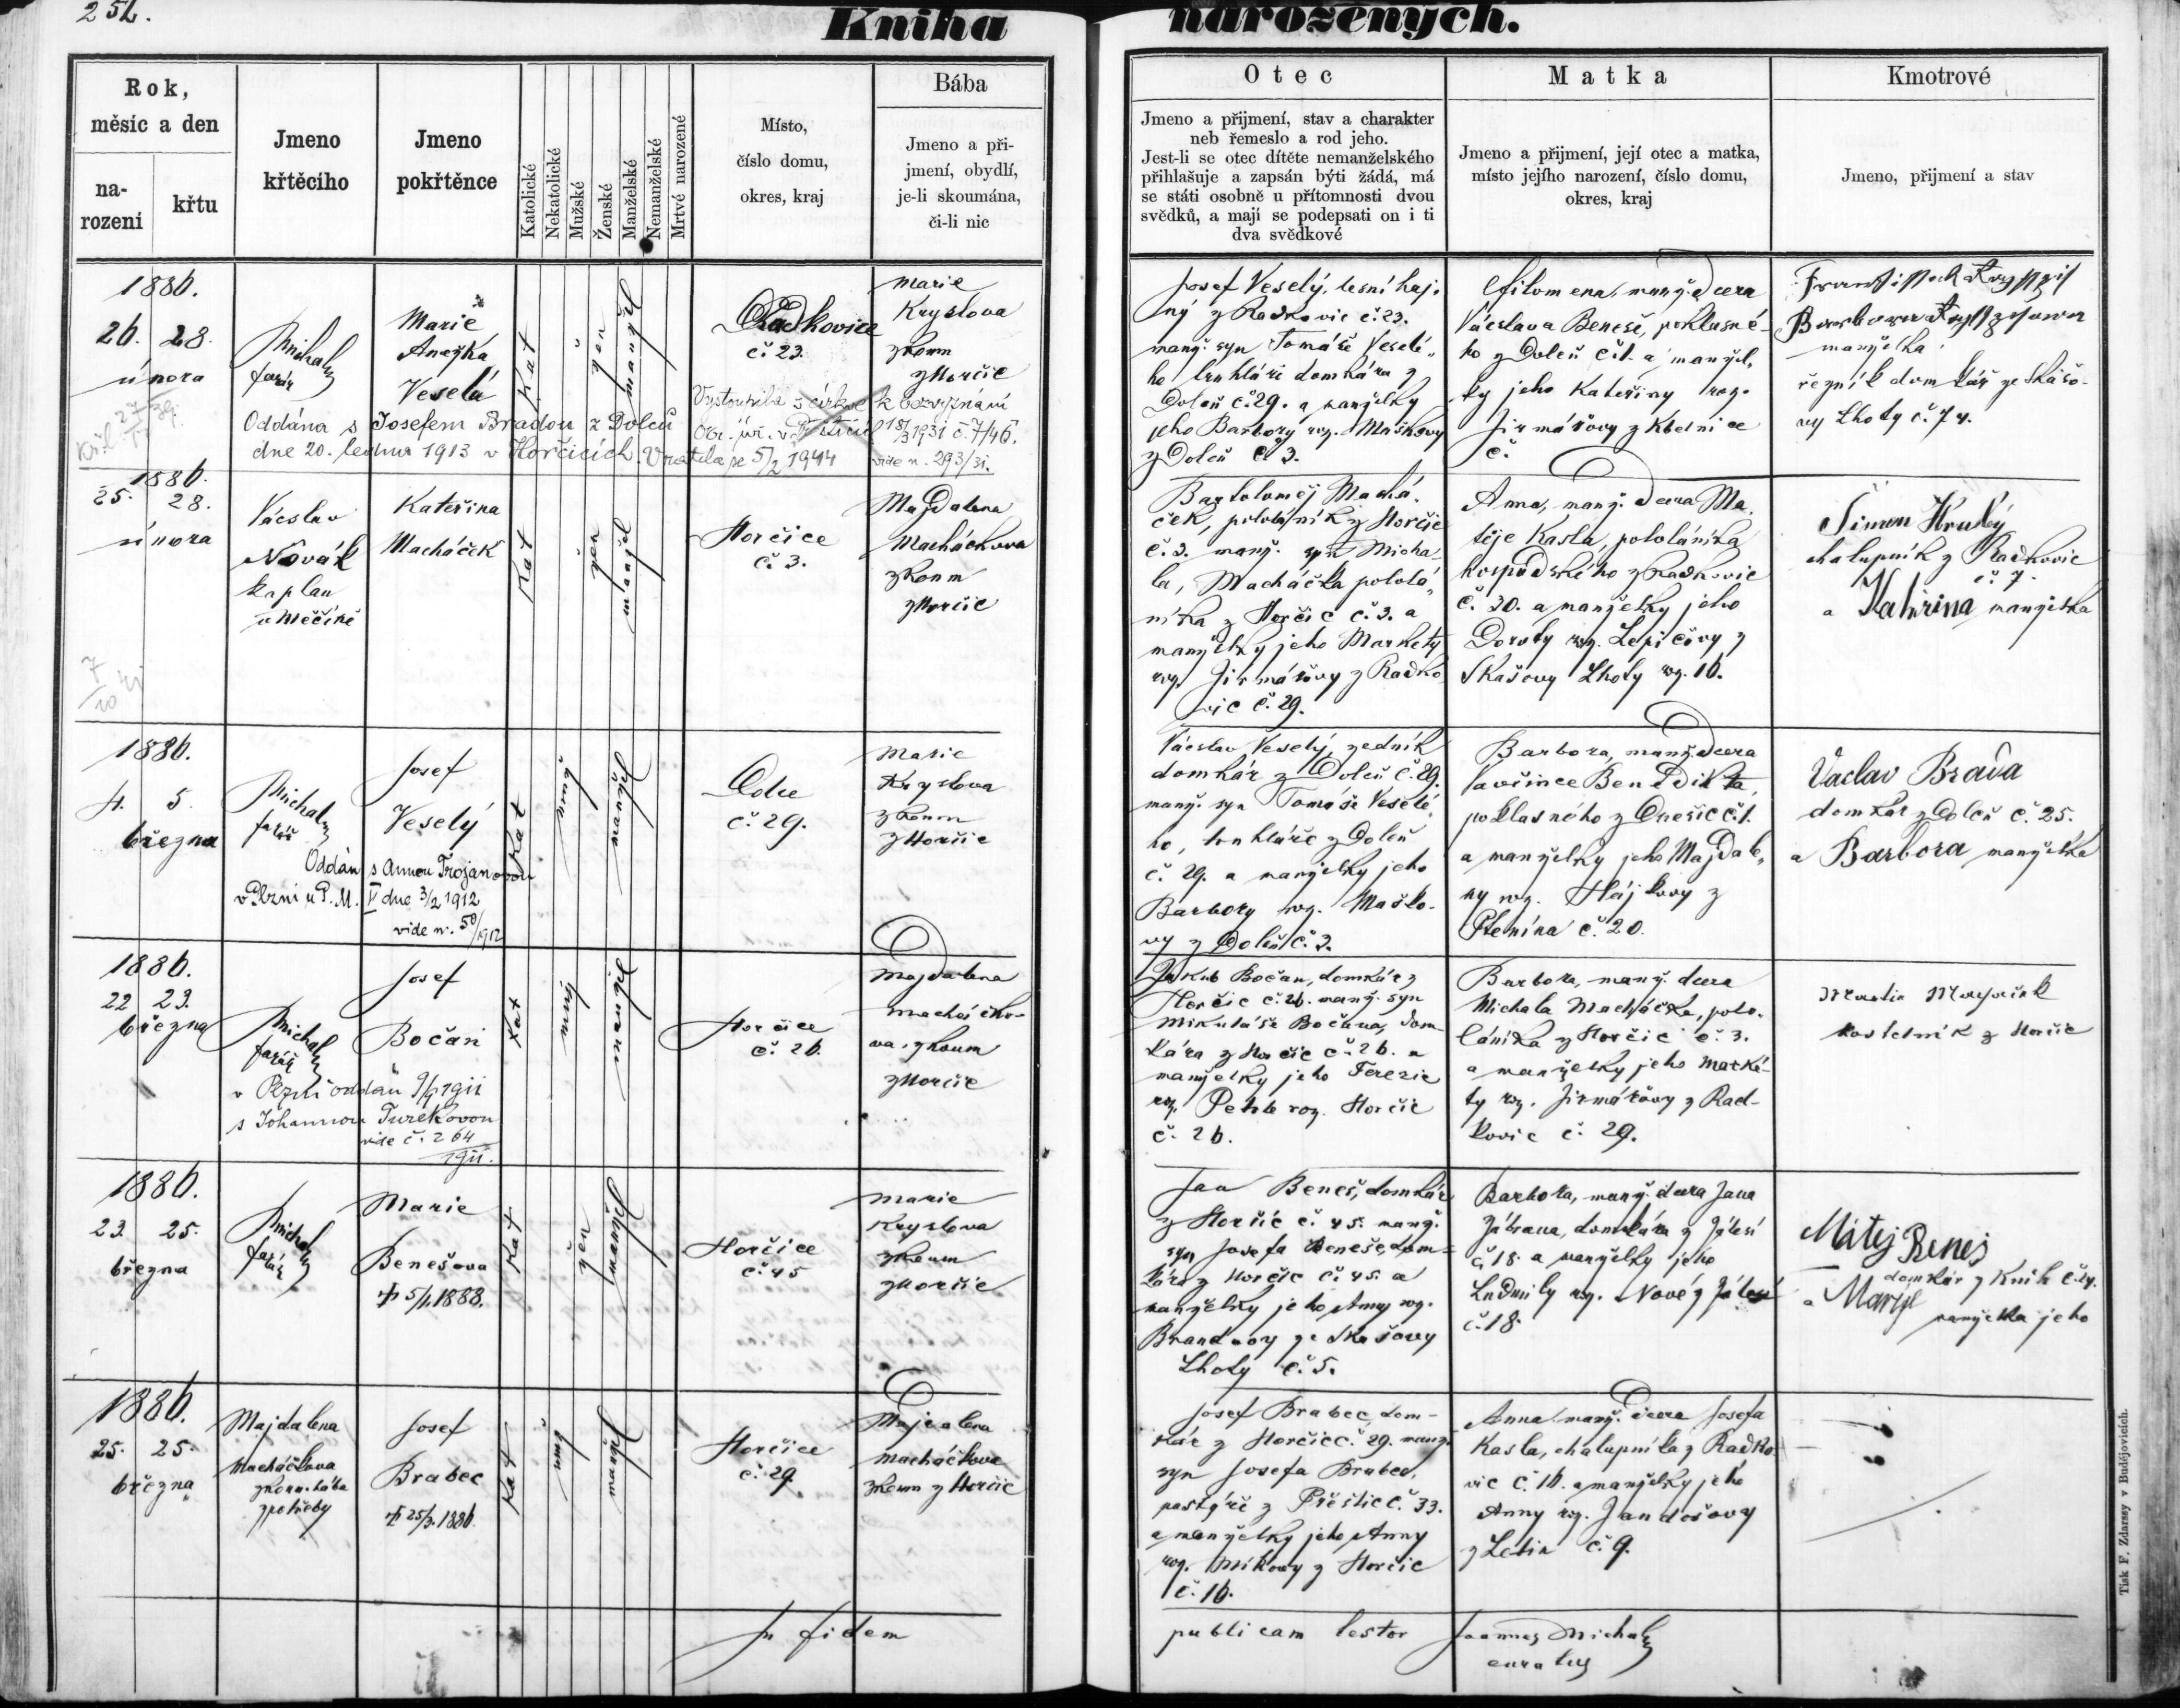 252.
Kniha narozených.
Rok,
měsíc a den
na-
rození
křtu
Jmeno
křtěcího
Jmeno
pokřtěnce
Katolické
Nekatolické
Mužské
Ženské
Manželské
Nemanželské
Mrtvé narozené
Místo,
číslo domu,
okres, kraj
Bába
Jmeno a při-
jmení, obydlí,
je-li skoumána,
či-li nic
Otec
Jmeno a přijmení, stav a charakter
neb řemeslo a rod jeho.
Jest-li se otec dítěte nemanželského
přihlašuje a zapsán býti žádá, má
se státi osobně u přítomnosti dvou
svědků, a mají se podepsati on i ti
dva svědkové
Matka
Jmeno a přijmení, její otec a matka,
místo jejího narození, číslo domu,
okres, kraj
Kmotrové
Jmeno, přijmení a stav
1886.
26. 28.
února
Michal
farář
Marie
Anežka
Veselá
Kat
žen
manžel
Radkovice
č. 23.
Marie
Kryslova
zkoum
z Horčic
Oddána s Josefem Bradou z Dolců
dne 20. ledna 1913 v Horčicích.
Vystoupila z církve k bezvyznání
18/3 1931 č. 7/46.
Vrátila se 5/2 1944
vide n. 293/31.
Josef Veselý, lesní haj-
ný z Radkovic č. 23.
manž. syn Tomáše Veselé-
ho truhláře domkáře z
Dolců č. 29. a manželky
jeho Barbory roz. Maškovy
z Dolců č. 3.
Filomena, manž. dcera
Václava Beneše, poklasné-
ho z Dolců č. 1. a manžel-
ky jeho Kateřiny roz.
Jirmářovy z Kbelnice
č.
manželka
řezník domkář ze Skašo-
vy Lhoty č. 74.
1886.
25. 28.
února
Václav
Novák
kaplan
v Měčíně
Kateřina
Macháček
Kat
žen
manžel
Horčice
č. 3.
Magdalena
Macháčkova
zkoum
z Horčic
7/10 31
Bartoloměj Machá-
ček, pololáník z Horčic
č. 3. manž. syn Micha-
la, Macháčka pololá-
níka z Horčic č. 3. a
manželky jeho Markéty
roz. Jirmářovy z Radko-
vic č. 29.
Anna, manž. dcera Ma-
těje Kasla, pololáníka
hospodského z Radkovic
č. 30. a manželky jeho
Doroty roz. Lepičovy z
Skašovy Lhoty roz. 16.
Šimon Hrubý
chalupník z Radkovic
č. 7.
a Kateřina manželka
1886.
4. 5.
března
Michal
farář
Josef
Veselý
Kat
muž
manžel
Dolce
č. 29.
Marie
Kryslova
zkoum
z Horčic
Oddán s Annou Trojanovou
v Plzni u P. M. dne 3/2 1912
vide n. 50/1912
Václav Veselý, zedník
domkář z Dolců č. 29.
manž. syn Tomáše Veselé-
ho, truhláře z Dolců
č. 29. a manželky jeho
Barbory roz. Maško-
vy z Dolců č. 3.
Barbora, manž. dcera
Benedikta,
poklasného z Dnešic č. 1.
a manželky jeho Magdale-
ny roz. Hájkovy z
Ptenína č. 20.
Vaclav Brada
domkář z Dolců č. 25.
a Barbora manželka
1886.
22 23.
března
Michal
farář
Josef
Bočan
Kat
muž
manžel
Horčice
č. 26.
Magdalena
Macháčko-
va, zkoum
z Horčic
v Plzni oddán 9/4 1911
s Johannou Turekovou
vide č. 264
1911.
Jakub Bočan, domkář z
Horčic č. 26. manž. syn
Mikuláše Bočana, dom-
káře z Horčic č. 26. a
manželky jeho Terezie
roz. Petrle roz. Horčic
č. 26.
Barbora, manž. dcera
Michala Macháčka, polo-
láníka z Horčic č. 3.
a manželky jeho Marké-
ty roz. Jirmářovy z Rad-
kovic č. 29.
Martin
kostelník z Horčic
1886.
23. 25.
března
Michal
farář
Marie
Benešova
† 5/1 1888.
Kat.
žen
manžel
Horčice
č. 45
Marie
Kryslova
zkoum
z Horčic
Jan Beneš, domkář
z Horčic č. 45. manž.
syn Josefa Beneše, dom-
káře z Horčic č. 45. a
manželky jeho Anny roz.
Brandovy ze Skašovy
Lhoty č. 5.
Barbora, manž. dcera Jana
Jábrana, domkáře z Jálesí
č. 18. a manželky jeho
Ludmily roz. Nové z Jálesí
č. 18.
Matej Benes
domkář z Knih č. 24.
a Marye
manželka jeho
1886.
25. 25.
března
Majdalena
Macháčkova
zkoum. bába
z potřeby
Josef
Brabec
† 25/3. 1886.
Kat
muž
manžel
Horčice
č. 29
Magdalena
Macháčkova
zkoum z Horčic
Josef Brabec, dom-
kář z Horčic č. 29. manž.
syn Josefa Brabce,
pastýře z Přeštic č. 33.
a manželky jeho Anny
roz. Míkovy z Horčic
č. 16.
Anna, manž. dcera Josefa
Kasla, chalupníka z Radko-
vic č. 16. a manželky jeho
Anny roz. Jandošovy
z Letin č. 9.
In fidem publicam testor Joannes Michal
curatus
Tisk F. Zdarssy v Budějovicích.